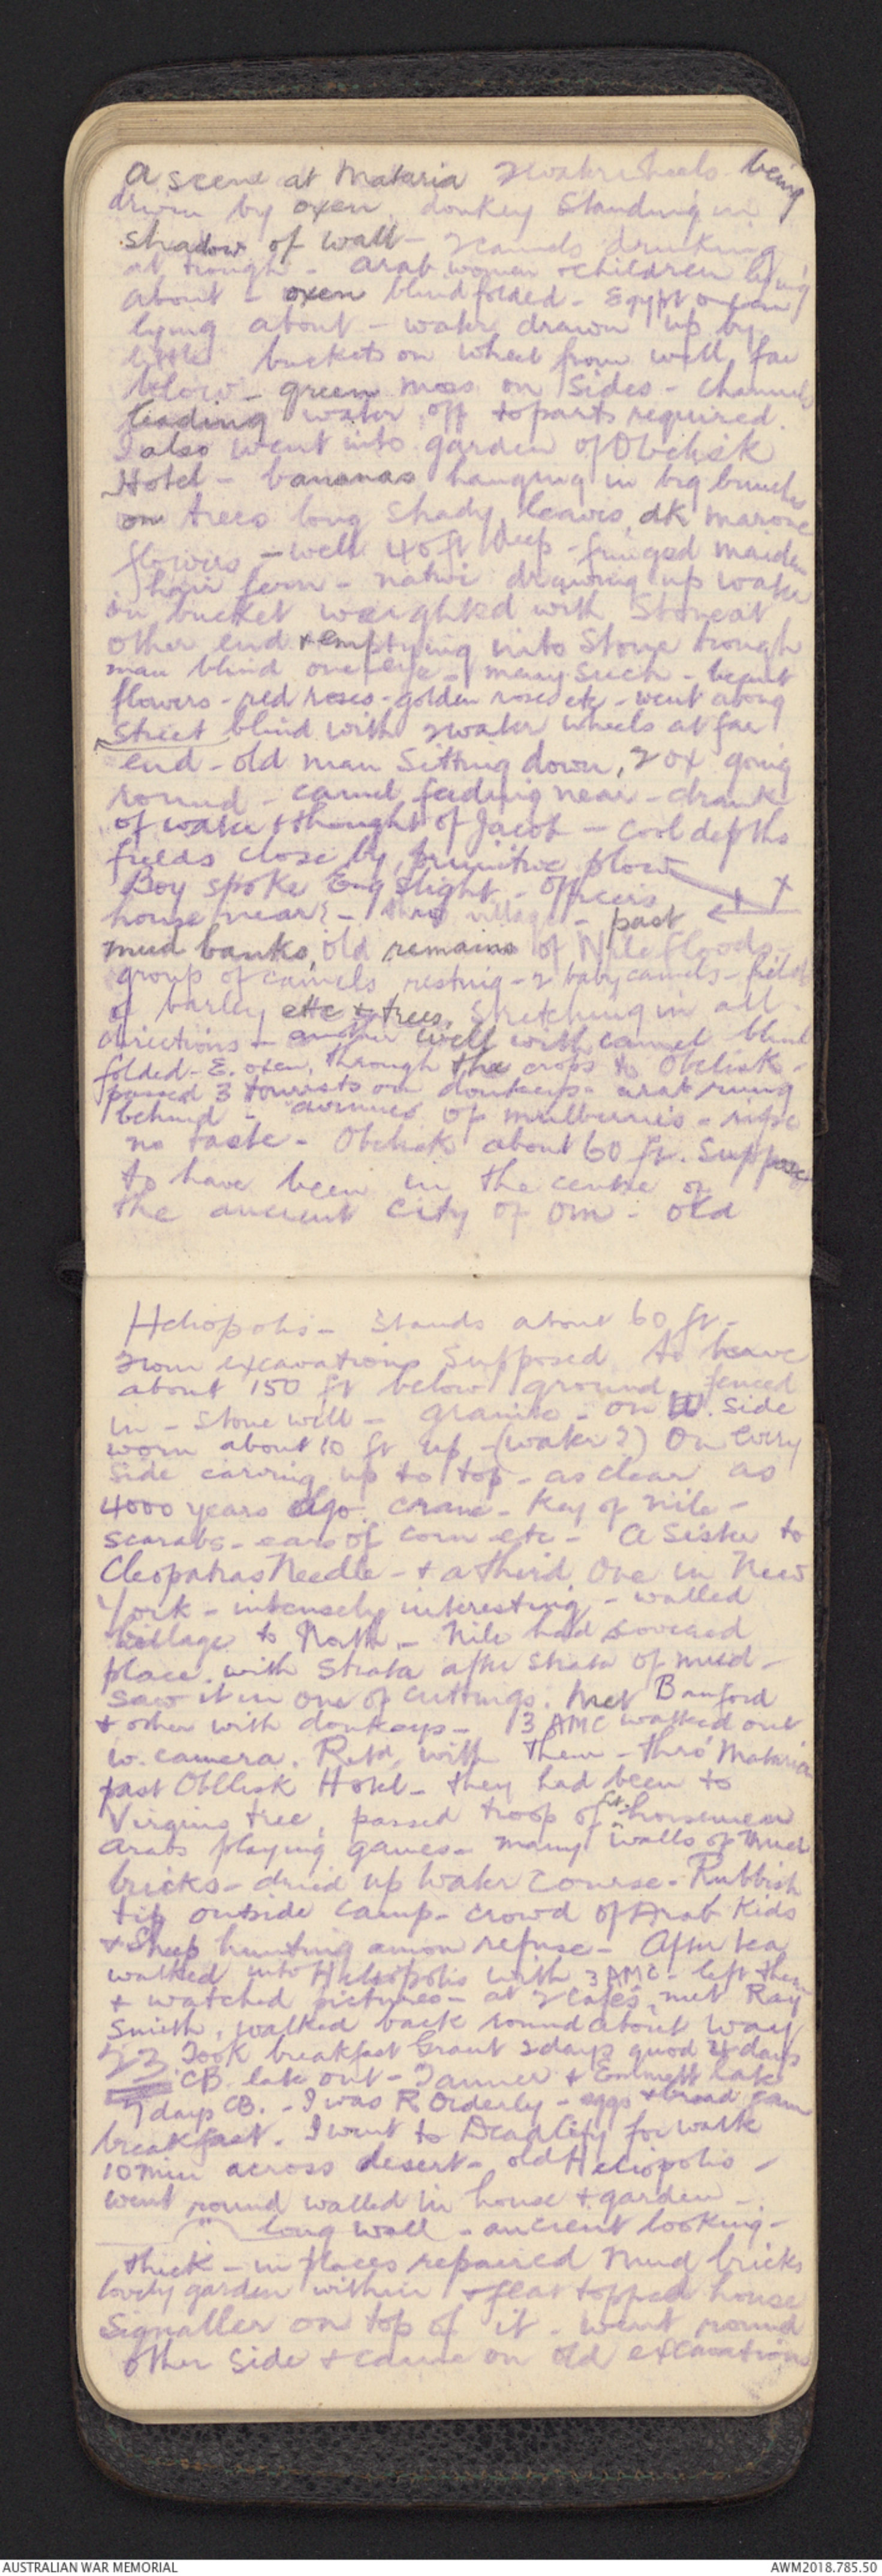 A scene at Mataria 2 water wheels being
driven by oxen, donkey standing in
shadow of wall - 2 camels drinking
at trough - arab women & children lying
about - oxen blindfolded - Egypt
lying about - water drawn up by
little buckets on wheel from well, far
below - green moss on sides - channels
leading water off to parts required.
I also went into garden of Obelisk
Hotel - bananas hanging in big bunches
on trees long shady leaves, dk maroone
flowers - well 40 ft deep - fringed maiden
hair fern - native drawing up water
in bucket weighted with stone at
other end & emptying into stone trough
man blind one eye - many such - beaut
flowers - red roses - golden roses etc - went along
street blind with 2 water wheels at far
end - old man sitting down, 2 ox going
round - camel feeding near - drank
of water & thought of Jacob - cool depths
fields close by, primitive plow
Boy spoke Eng slight - Officers
house near? - thro village - past
mud banks, old remains of Nile floods -
group of camels resting - 2 baby camels - fields
of barley etc & trees, stretching in all
directions - another well with camel blind
folded - E. oxen, through the crops to Obelisk -
passed 3 tourists on donkeys - arab runng
behind - avenues of mulberries - ripe
no taste - Obelisk about 60 ft. Suppose
to have been in the centre of
the ancient City of Om - old
Heliopolis - Stands about 60 ft -
from excavations supposed to have
about 150 ft below ground, fenced
in - stone well - granite - on W. side
worn about 10 ft up - (water?) On every
side carving up to top - as clear as
4000 years ago. crane - Key of Nile -
scarabs - ears of corn etc - A sister to
Cleopatras Needle - & a third one in New
York - intensely interesting - walled
village to North - Nile had covered
place with strata after strata of mud -
saw it in one of cuttings. Met Bamford
& other with donkeys - 3 AMC walked out
w. camera. Retd, with them - thro' Mataria
past Obelisk Hotel - they had been to
Virgins tree, passed troop of horsemen
Arabs playing games - many walls of mud
bricks - dried up water course - Rubbish
tip outside camp - crowd of Arab kids
& sheep hunting amon refuse - After tea
walked into Heliopolis with 3 AMC - left them
& watched pictures - at 2 cafes, met Ray
Smith, walked back roundabout way
23 Took breakfast Grant 2 days quod 4 days
CB late out - Tanner & Emmett late
7 days CB. - I was R Orderly - eggs & bread jam
breakfast. I went to Dead City for walk
10 min across desert - old Heliopolis -
went round walled in house & garden -
long wall - ancient looking -
thick - in places repaired mud bricks
lovely garden within & flat topped house
Signaller on top of it - went round
other side & came on old excavations
AUSTRALIAN WAR MEMORIAL
AWM2018.785.50